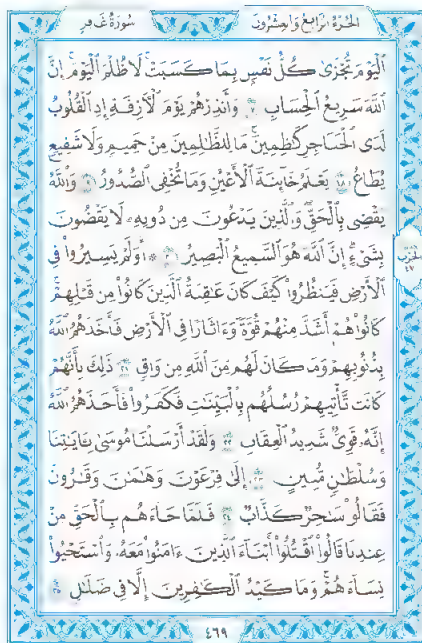 الجزء الرابع والعشرون سورة غافر
ٱلْيَوْمَ تُجْزَىٰ كُلُّ نَفْسٍۭ بِمَا كَسَبَتْ ۚ لَا ظُلْمَ ٱلْيَوْمَ ۚ إِنَّ
ٱللَّهَ سَرِيعُ ٱلْحِسَابِ ۝١٧ وَأَنذِرْهُمْ يَوْمَ ٱلْـَٔازِفَةِ إِذِ ٱلْقُلُوبُ
لَدَى ٱلْحَنَاجِرِ كَـٰظِمِينَ ۚ مَا لِلظَّـٰلِمِينَ مِنْ حَمِيمٍ وَلَا شَفِيعٍ
يُطَاعُ ۝١٨ يَعْلَمُ خَآئِنَةَ ٱلْأَعْيُنِ وَمَا تُخْفِى ٱلصُّدُورُ ۝١٩ وَٱللَّهُ
يَقْضِى بِٱلْحَقِّ ۖ وَٱلَّذِينَ يَدْعُونَ مِن دُونِهِۦ لَا يَقْضُونَ
بِشَىْءٍ ۗ إِنَّ ٱللَّهَ هُوَ ٱلسَّمِيعُ ٱلْبَصِيرُ ۝٢٠ ۞ أَوَلَمْ يَسِيرُوا۟ فِى
ٱلْأَرْضِ فَيَنظُرُوا۟ كَيْفَ كَانَ عَـٰقِبَةُ ٱلَّذِينَ كَانُوا۟ مِن قَبْلِهِمْ ۚ
كَانُوا۟ هُمْ أَشَدَّ مِنْهُمْ قُوَّةً وَءَاثَارًا فِى ٱلْأَرْضِ فَأَخَذَهُمُ ٱللَّهُ
بِذُنُوبِهِمْ وَمَا كَانَ لَهُم مِّنَ ٱللَّهِ مِن وَاقٍ ۝٢١ ذَٰلِكَ بِأَنَّهُمْ
كَانَت تَّأْتِيهِمْ رُسُلُهُم بِٱلْبَيِّنَـٰتِ فَكَفَرُوا۟ فَأَخَذَهُمُ ٱللَّهُ ۚ
إِنَّهُۥ قَوِىٌّ شَدِيدُ ٱلْعِقَابِ ۝٢٢ وَلَقَدْ أَرْسَلْنَا مُوسَىٰ بِـَٔايَـٰتِنَا
وَسُلْطَـٰنٍ مُّبِينٍ ۝٢٣ إِلَىٰ فِرْعَوْنَ وَهَـٰمَـٰنَ وَقَـٰرُونَ
فَقَالُوا۟ سَـٰحِرٌ كَذَّابٌ ۝٢٤ فَلَمَّا جَآءَهُم بِٱلْحَقِّ مِنْ
عِندِنَا قَالُوا۟ ٱقْتُلُوٓا۟ أَبْنَآءَ ٱلَّذِينَ ءَامَنُوا۟ مَعَهُۥ وَٱسْتَحْيُوا۟
نِسَآءَهُمْ ۚ وَمَا كَيْدُ ٱلْكَـٰفِرِينَ إِلَّا فِى ضَلَـٰلٍ ۝٢٥
الحزب
٤٧
٤٦٩